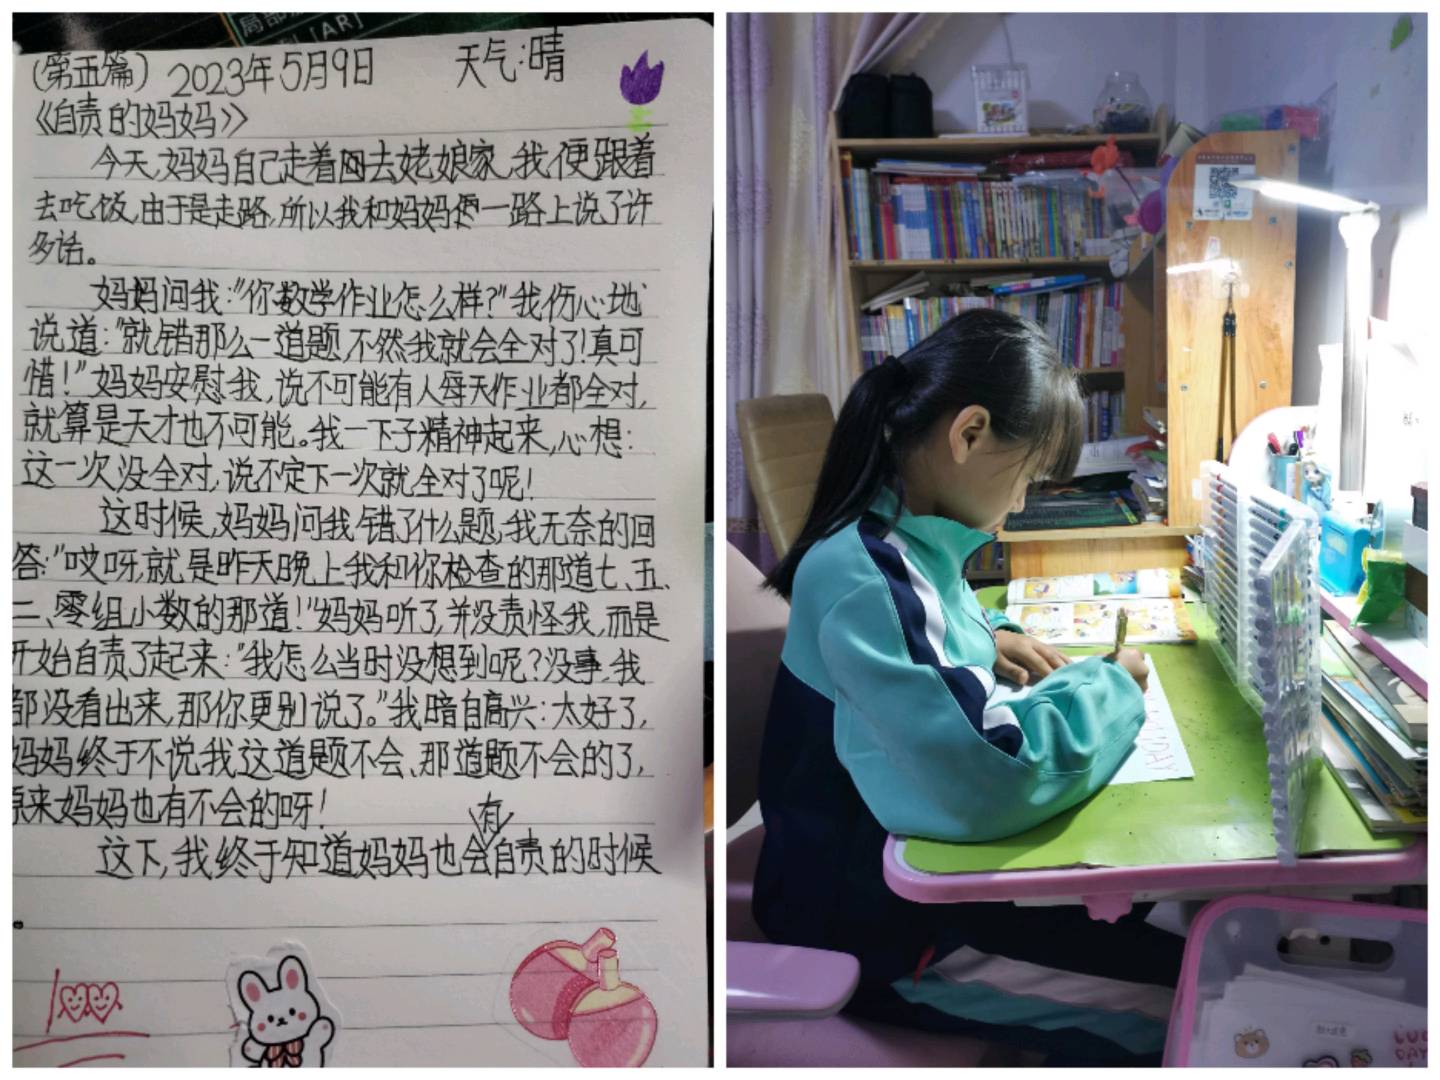 局部
[AR]
(第五篇) 2023年5月9日 天气:晴
《自责的妈妈》
今天,妈妈自己走着回去姥娘家,我便跟着
去吃饭,由于是走路,所以我和妈妈便一路上说了许
多话。
妈妈问我:"你数学作业怎么样?"我伤心地
说道:"就错那么一道题,不然我就会全对了!真可
惜!"妈妈安慰我,说不可能有人每天作业都全对,
就算是天才也不可能。我一下子精神起来,心想:
这一次没全对,说不定下一次就全对了呢!
这时候,妈妈问我错了什么题,我无奈的回
答:"哎呀,就是昨天晚上我和你检查的那道七、五、
二、零组小数的那道!"妈妈听了,并没责怪我,而是
开始自责了起来:"我怎么当时没想到呢?没事,我
都没看出来,那你更别说了。"我暗自高兴:太好了,
妈妈终于不说我这道题不会、那道题不会的了,
原来妈妈也有不会的呀!
这下,我终于知道妈妈也会有自责的时候
。
100